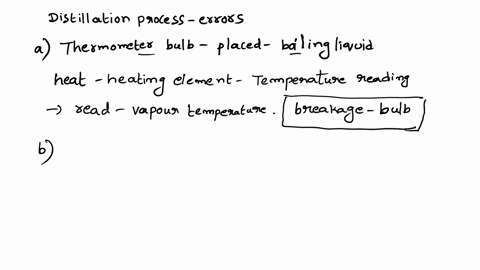 Distillation process - errors
a) Thermometer bulb - placed - boiling liquid
heat - heating element - Temperature reading
→ read - vapour temperature. breakage - bulb
b)